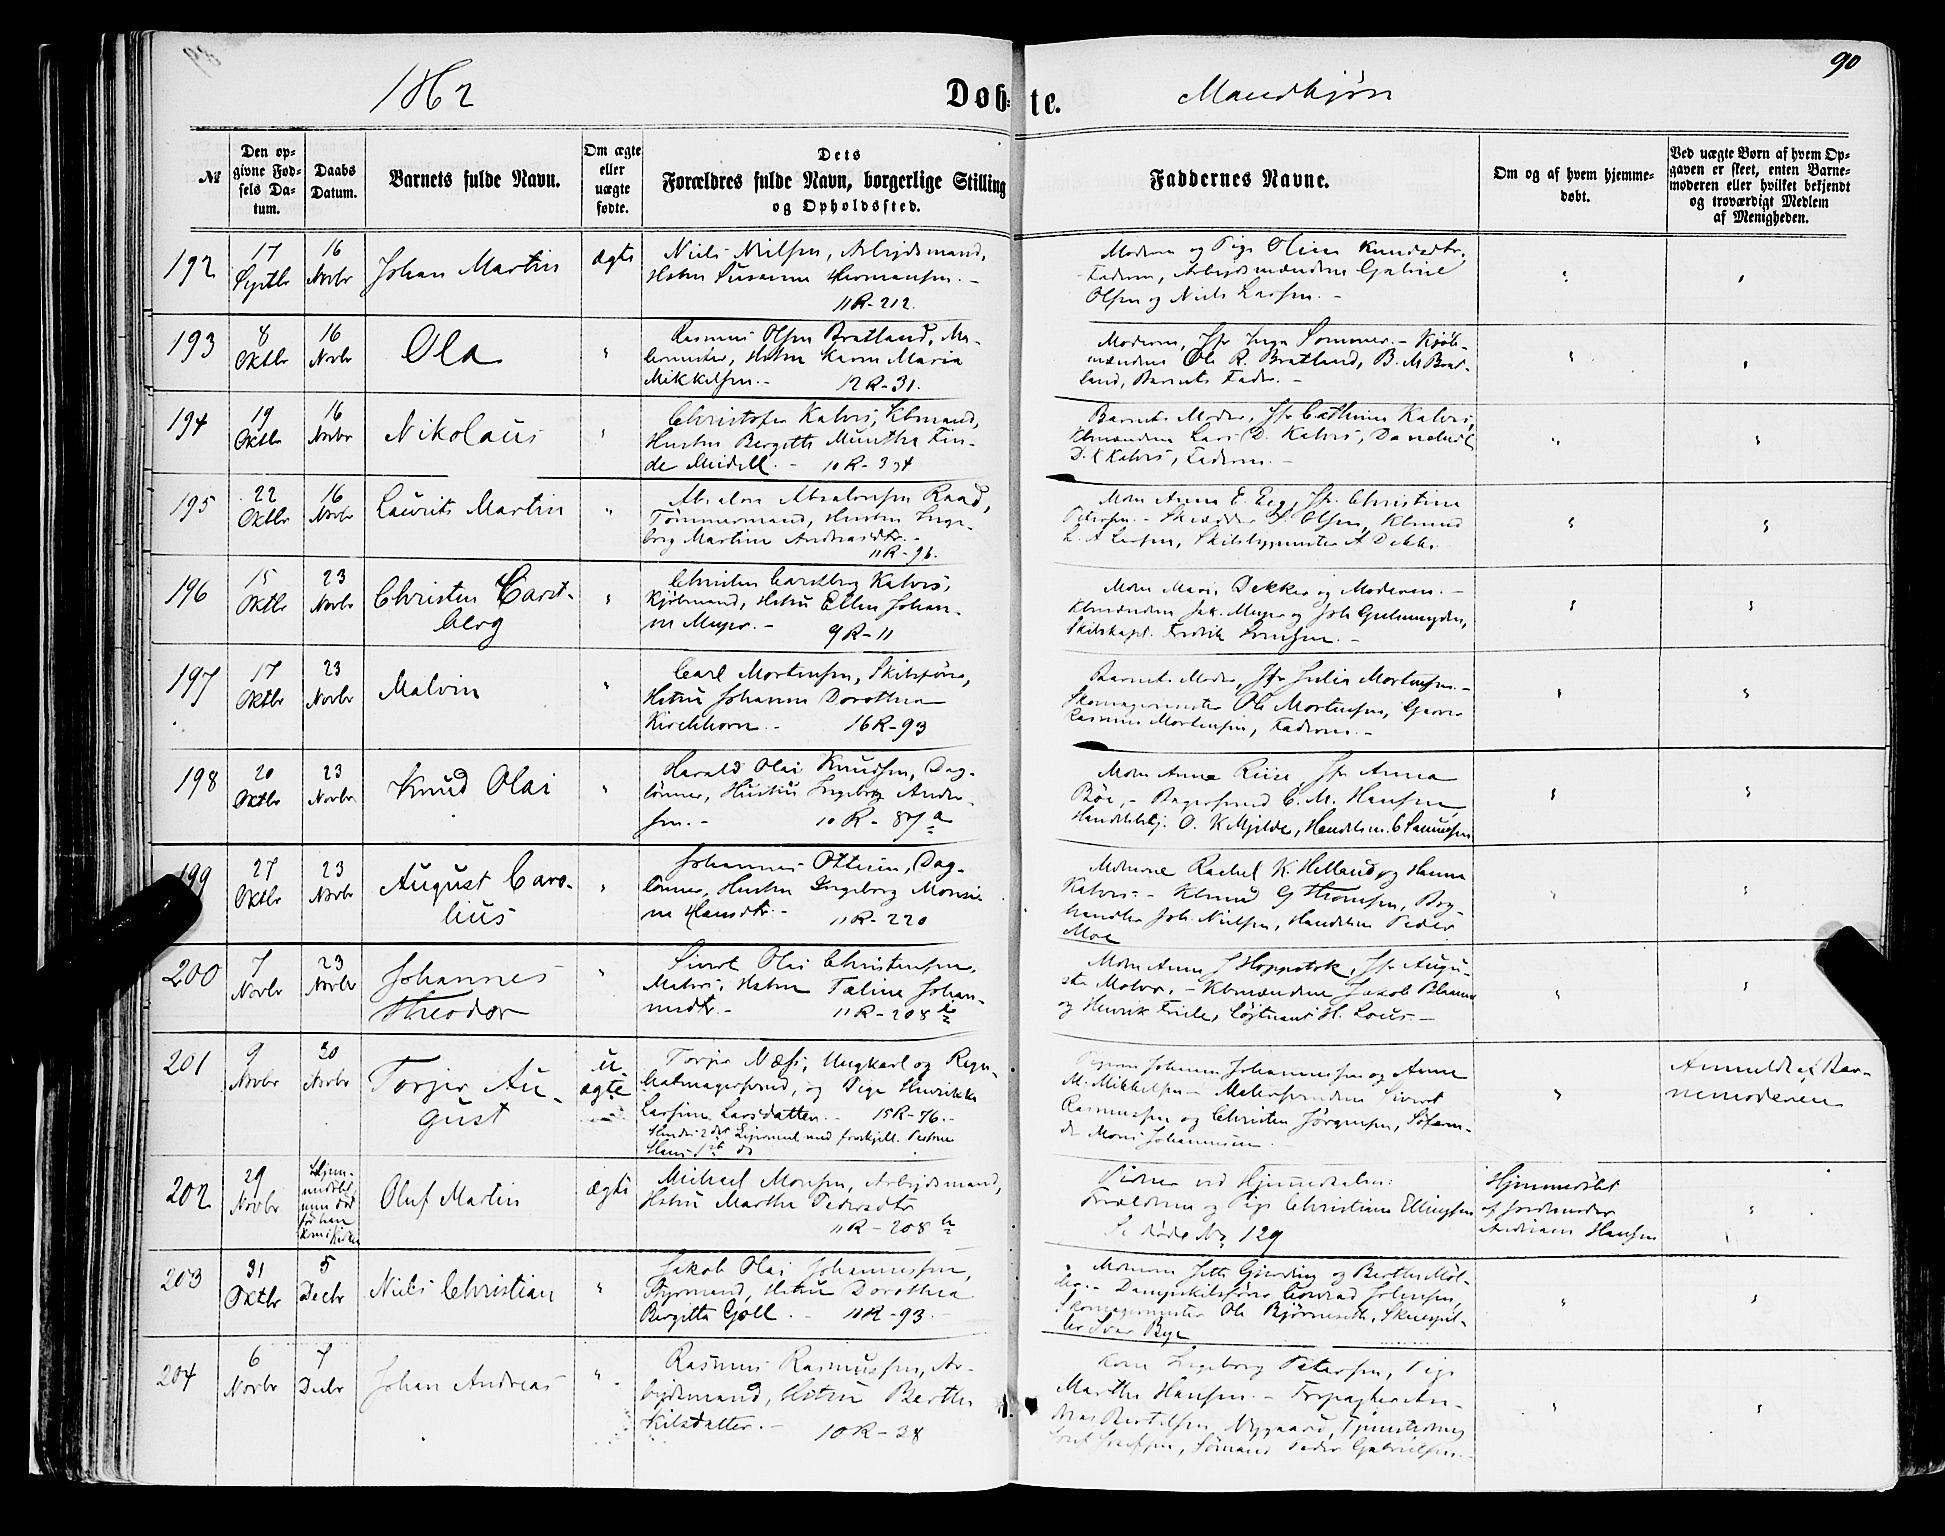 90
1862
Døbte.
Mandkjøn
№
Den opgivne Fødsels Datum.
Daabs Datum.
Barnets fulde Navn.
Om ægte eller uægte fødte.
Dets Forældres fulde Navn, borgerlige Stilling og Opholdssted.
Faddernes Navne.
Om og af hvem hjemmedøbt.
Ved uægte Børn af hvem Opgaven er skeet, enten Barnemoderen eller hvilket bekjendt og troværdigt Medlem af Menigheden.
192
17 Septbr
16 Novbr
Johan Martin
ægte
Niels Nielsen, Arbejdsmand,
Hstru Susanne Hermansen.-
11R-212.
Moderen og Pige Oline Knudsdtr,
Faderen, Arbejdsmændene Gabriel
Olsen og Niels Larsen.-
193
8 Oktbr
16 Novbr
Ola
"
Rasmus Olsen Bratland, Ma-
lermester, Hstru Karen Maria
Mikkelsen.-
12R-31.
Moderen, Jfr Inga Sommer.- Kjøb-
mændene Ole R. Bratland, B. M Brat-
land, Barnets Fader.-
194
19 Oktbr
16 Novbr
Nikolaus
"
Christofer Kahrs, Kbmand,
Hustru Bergitte Munthe Fin-
de Meidell.-
10R-394
Barnets Moder, Jfr Cathrine Kahrs,
Kbmændene Lars D. Kahrs, Danchert
D. K Kahrs, Faderen.-
195
22 Oktbr
16 Novbr
Laurits Martin
"
Absalon Absalonsen Raad,
Tømmermand, Hustru Inge-
borg Martine Andreasdtr.-
11R-96.
Mdm Anna E. Eeg, Jfr. Christine
Petersen.- Skrædder Olsen, Kbmnd
L. A Larsen, Skibsbyggmester A Dekke
196
15 Oktbr
23 Novbr
Christen Carst-
berg
"
Christen Carstberg Kahrs,
Kjøbmand, Hstru Ellen Johan-
ne Meyer.-
9R-11
Mdm Marie Dekker og Moderen.-
Kbmændene Jak. Meyer og Joh Geelmuyden,
Skibskapt. Fredrik
197
17 Oktbr
23 Novbr
Malvin
"
Carl Mortensen, Skibsfører,
Hstru Johanne Dorothea
Kirchhorn.-
16R-93
Barnets Moder, Jfr Julia Mortensen.-
Skomagermester Ole Mortensen, Garver
Rasmus Mortensen, Faderen.-
198
20 Oktbr
23 Novbr
Knud Olai
"
Harald Olai Knudsen, Dag-
lønner, Hustru Ingeborg Ander-
sen.-
10R-87a
Mdm Anna Riise, Jfr Anna
Bøe,- Bagersvend C. M. Hansen,
Handelsbtj. O. K Mjelde, Handelsm. C Samuelsen
199
27 Oktbr
23 Novbr
August Caro-
lius
"
Johannes Ottesen, Dag-
lønner, Hustru Ingeborg Monsi-
ne Hansdtr.-
11R-220
Mdmne Rachel K. Helland og Hanna
Kahrs.- Kbmnd G Thomsen, Bog-
handler Joh. Nielsen, Handelsm Peder
Moe
200
7 Novbr
23 Novbr
Johannes
Theodor
"
Sivert Olai Christensen,
Matros, Hstru Taline Johan-
nesdtr.-
11R-208b
Mdm Anna J Hoppstok, Jfr Augu-
sta Molvær.- Kbmændene Jakob Blaauw
og Henrik Friele, Løjtnant H. Lous.-
201
9 Novbr
30 Novbr
Torjer Au-
gust
u-
ægte
Torjer Næss, Ungkarl og Rep-
, og Pige Henrikke
Larsine Larsdatter.-
15R-76.-
Hendes 2det Lejermaal med forskjell. Personer
Hans 1ste do
Pigerne Johanne Johannessen og Anna
M. Mikkelsen- Malersvendene Sivert
Rasmussen og Christen Jørgensen, Søfarn-
de Mons Johannesen.
"
Anmeldt af Bar-
nemoderen
202
29 Novbr
Hjem-
medøbt
men død
før han
kom i Kirke
Oluf Martin
ægte
Michael Monsen, Arbejdsmand,
Hstru Martha Pedersdtr
11R-208b
Vidner ved Hjemmedaaben:
Forældrene og Pige Christiane Ellingsen
Se døde No 129
Hjemmedøbt
af Jordemoder
Andriane Hansen
203
31 Oktbr
5 Decbr
Niels Christian
"
Jakob Olai Johannessen,
Styrmand, Hstru Dorothea
Bergitta Gjøll.-
11R-93.
Mdmne Jette Gjerding og Berthe Møl-
ler.- Dampskibsfører Conrad Johnsen,
Skomagermester Ole Bjørneseth, Skuespil-
ler Ivar Bye
204
6 Novbr
7 Decbr
Johan Andreas
"
Rasmus Rasmussen, Ar-
bejdsmand, Hstru Berthe
Nilsdatter.-
10R-38
Kone Ingeborg Petersen, Pige
Marthe Hansen.- Forpagter An-
dreas Bertelsen, Nygaard, Tjenestedreng
, Sømand Peder Gabrielsen.-